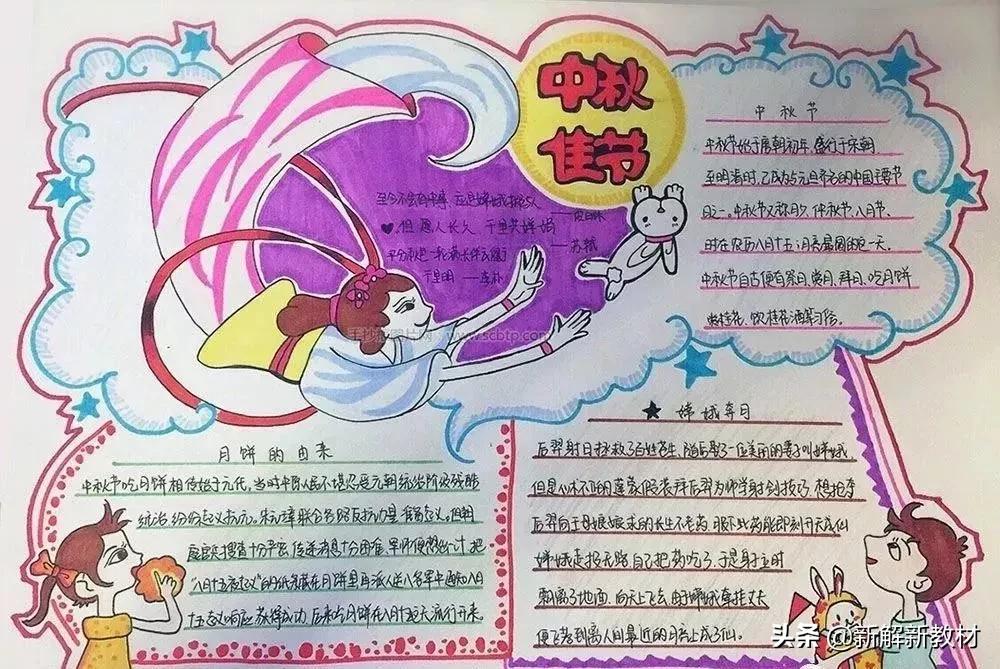 中秋
佳节
中秋节
中秋节始于唐朝初年,盛行于宋朝,
至明清时,已成为与元旦齐名的中国主要节
日之一。中秋节又称月夕、仲秋节、八月节。
时在农历八月十五,月亮最圆的一天。
中秋节自古便有祭月、赏月、拜月、吃月饼
饮桂花酒等习俗。
但愿人长久,千里共婵娟
——苏轼
平分秋色一轮满长伴云衢
千里明——李朴
手抄报图片网 www.scbtp.com
月饼的由来
中秋节吃月饼相传始于元代,当时中原人民不堪忍受元朝统治阶级残酷
统治,纷纷起义抗元。朱元璋联合各路反抗力量
搜查十分严密,传递消息十分困难,军师便想出一计,把
“八月十五夜起义”的纸条藏在月饼里再派人送
后来吃月饼在八月十五流行开来。
★ 嫦娥奔月
后羿射日拯救了百姓苍生,随后娶了一位美丽的妻子叫嫦娥,
但是心术不正的蓬蒙假装拜后羿为师学射剑技巧,想抢夺
后羿向王母娘娘求的长生不老药,服下此药能即刻升天成仙
嫦娥走投无路自己把药吃了,于是身立时
飘离了地面,向天上飞去,由于嫦娥牵挂丈夫
便飞落到离人间最近的月亮上成了仙。
头条 @新解新教材